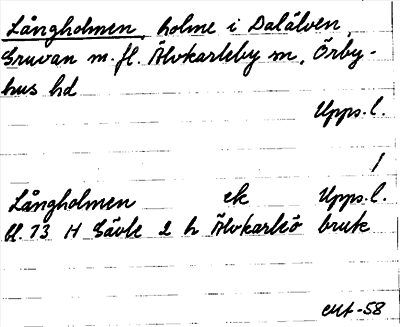 Långholmen, holme i Dalälven,
Gruvan m. fl. Älvkarleby sn, Örby-
hus hd
Upps. l.
1
Långholmen ek Upps. l.
bl. 73 H Gävle 2 h Älvkarleö bruk
EMt-58